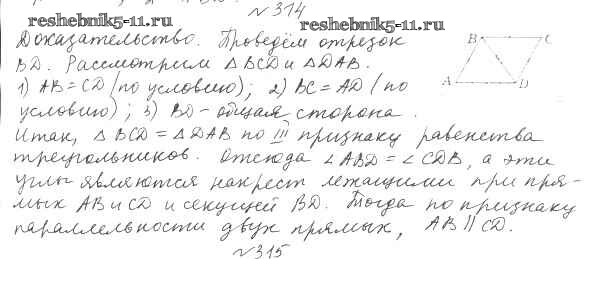 № 314
reshebnik5-11.ru reshebnik5-11.ru
Доказательство. Проведём отрезок
BD. Рассмотрим △BCD и △DAB.
1) AB = CD (по условию); 2) BC = AD (по
условию); 3) BD - общая сторона.
Итак, △BCD = △DAB по III признаку равенства
треугольников. Отсюда ∠ABD = ∠CDB, а эти
углы являются накрест лежащими при пря-
мых AB и CD и секущей BD. Тогда по признаку
параллельности двух прямых, AB || CD.
№ 315
B C
A D